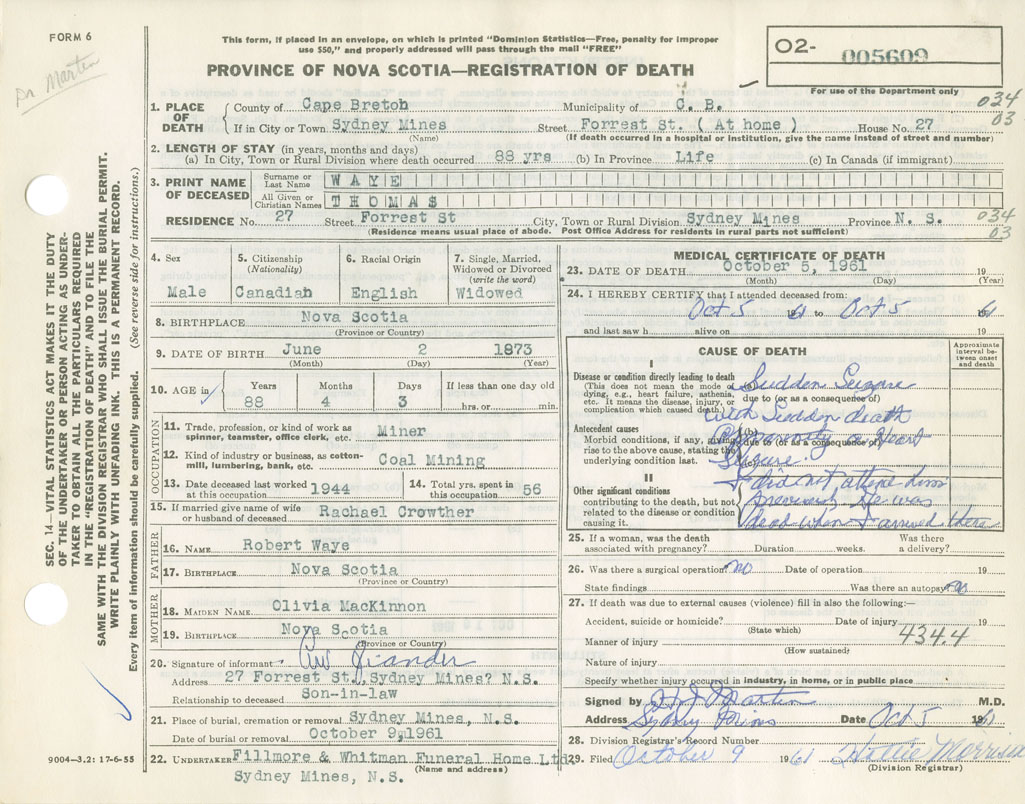 FORM 6
Dr. Martin
This form, if placed in an envelope, on which is printed "Dominion Statistics—Free, penalty for improper
use $50," and properly addressed will pass through the mail "FREE"
PROVINCE OF NOVA SCOTIA—REGISTRATION OF DEATH
O2- 005609
For use of the Department only
034
03
1. PLACE OF DEATH
County of Cape Breton Municipality of C. B.
If in City or Town Sydney Mines Street Forrest St. ( At home ) House No. 27
(Name) (If death occurred in a hospital or institution, give the name instead of street and number)
2. LENGTH OF STAY (in years, months and days)
(a) In City, Town or Rural Division where death occurred 88 yrs (b) In Province Life (c) In Canada (if immigrant)
3. PRINT NAME OF DECEASED
Surname or Last Name WAYE
All Given or Christian Names THOMAS
RESIDENCE No. 27 Street Forrest St City, Town or Rural Division Sydney Mines Province N. S.
(Residence means usual place of abode. Post Office Address for residents in rural parts not sufficient)
034
03
4. Sex
Male
5. Citizenship
(Nationality)
Canadian
6. Racial Origin
English
7. Single, Married,
Widowed or Divorced
(write the word)
Widowed
8. BIRTHPLACE Nova Scotia
(Province or Country)
9. DATE OF BIRTH June 2 1873
(Month) (Day) (Year)
10. AGE in
Years Months Days If less than one day old
88 4 3 hrs. or min.
OCCUPATION
11. Trade, profession, or kind of work as
spinner, teamster, office clerk, etc. Miner
12. Kind of industry or business, as cotton-
mill, lumbering, bank, etc. Coal Mining
13. Date deceased last worked
at this occupation 1944
14. Total yrs. spent in
this occupation 56
15. If married give name of wife
or husband of deceased Rachael Crowther
FATHER
16. NAME Robert Waye
17. BIRTHPLACE Nova Scotia
(Province or Country)
MOTHER
18. MAIDEN NAME Olivia MacKinnon
19. BIRTHPLACE Nova Scotia
(Province or Country)
20. Signature of informant
Address 27 Forrest St., Sydney Mines? N.S.
Relationship to deceased Son-in-law
21. Place of burial, cremation or removal Sydney Mines, N.S.
Date of burial or removal October 9, 1961
22. UNDERTAKER Fillmore & Whitman Funeral Home Ltd,
(Name and address)
Sydney Mines, N.S.
MEDICAL CERTIFICATE OF DEATH
23. DATE OF DEATH October 5, 1961 19
(Month) (Day) (Year)
24. I HEREBY CERTIFY that I attended deceased from:
Oct 5 61 to Oct 5 1961
and last saw h alive on 19
CAUSE OF DEATH
Approximate
interval be-
tween onset
and death
I
Disease or condition directly leading to death
(This does not mean the mode of
dying, e.g., heart failure, asthenia,
etc. It means the disease, injury, or
complication which caused death.)
Sudden Seizure
due to (or as a consequence of)
with Sudden death
Antecedent causes
Morbid conditions, if any, giving
rise to the above cause, stating the
underlying condition last.
(b)
Coronary or Heart
due to (or as a consequence of)
Seizure.
II
Other significant conditions
contributing to the death, but not
related to the disease or condition
causing it.
I did not attend him
previously He was
dead when I arrived there
25. If a woman, was the death
associated with pregnancy? Duration weeks. Was there
a delivery?
26. Was there a surgical operation? no Date of operation 19
State findings Was there an autopsy no
27. If death was due to external causes (violence) fill in also the following:—
Accident, suicide or homicide? Date of injury 19
(State which)
Manner of injury 434.4
(How sustained)
Nature of injury
Specify whether injury occurred in industry, in home, or in public place
Signed by H J Martin M.D.
Address Sydney Mines Date Oct 5 1961
28. Division Registrar's Record Number
29. Filed October 9 1961 Hattie Morrison
(Division Registrar)
SEC. 14—VITAL STATISTICS ACT MAKES IT THE DUTY
OF THE UNDERTAKER OR PERSON ACTING AS UNDER-
TAKER TO OBTAIN ALL THE PARTICULARS REQUIRED
IN THE "REGISTRATION OF DEATH" AND TO FILE THE
SAME WITH THE DIVISION REGISTRAR WHO SHALL ISSUE THE BURIAL PERMIT.
WRITE PLAINLY WITH UNFADING INK. THIS IS A PERMANENT RECORD.
Every item of information should be carefully supplied. (See reverse side for instructions.)
9004—3.2: 17-6-55